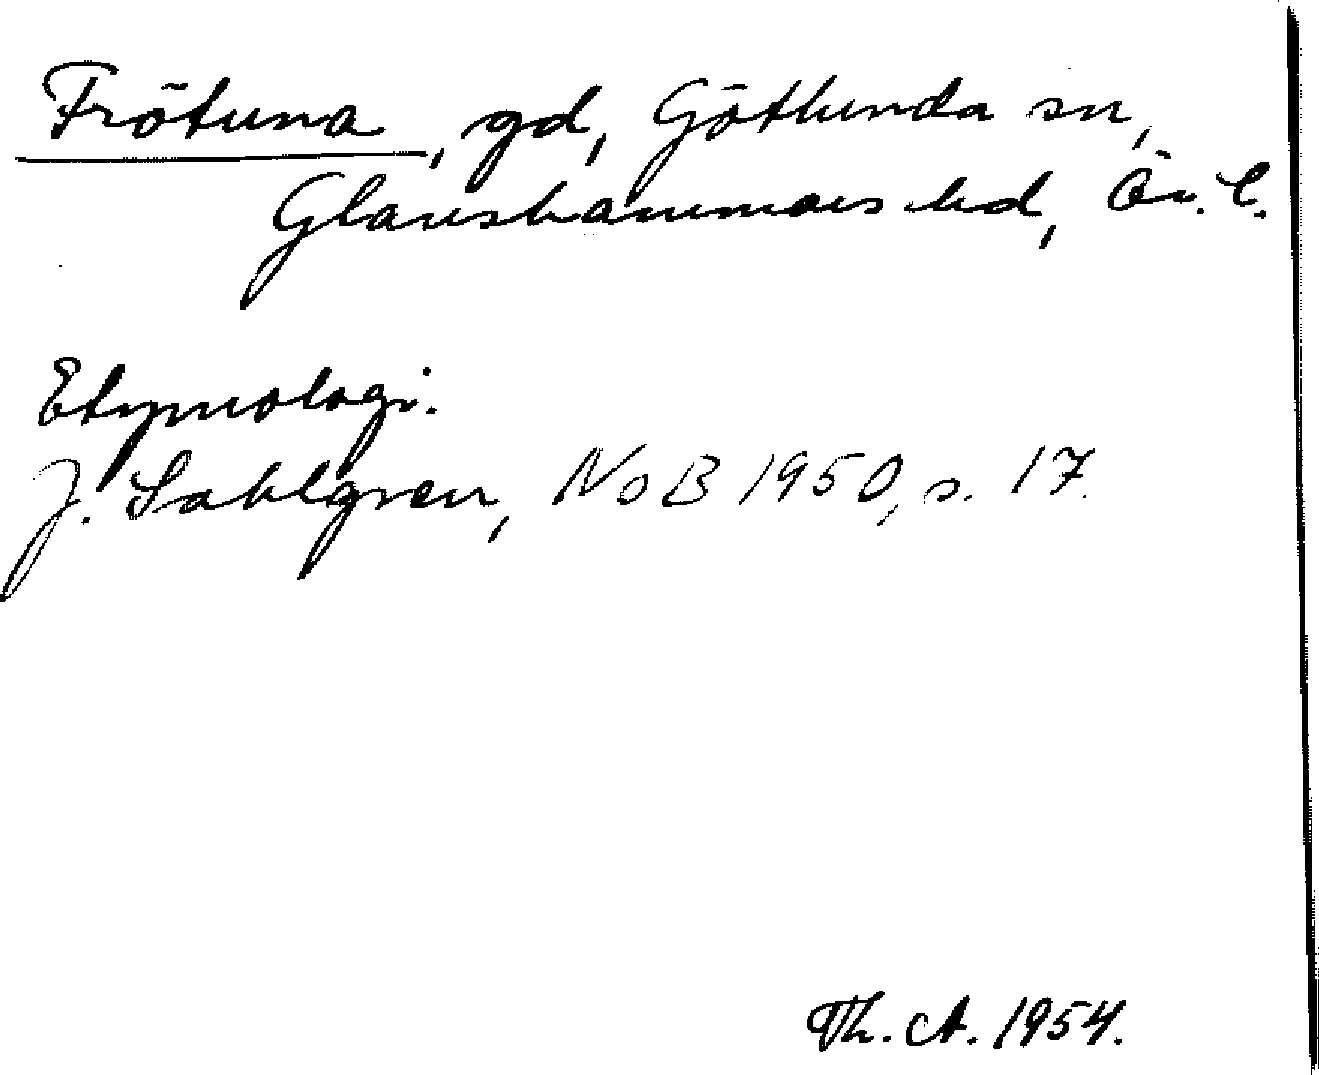 Frötuna, gd, Götlunda sn,
Glanshammars hd, Ör. l.
Etymologi.
J. Sahlgren, NoB 1950, s. 17.
Th. A. 1954.